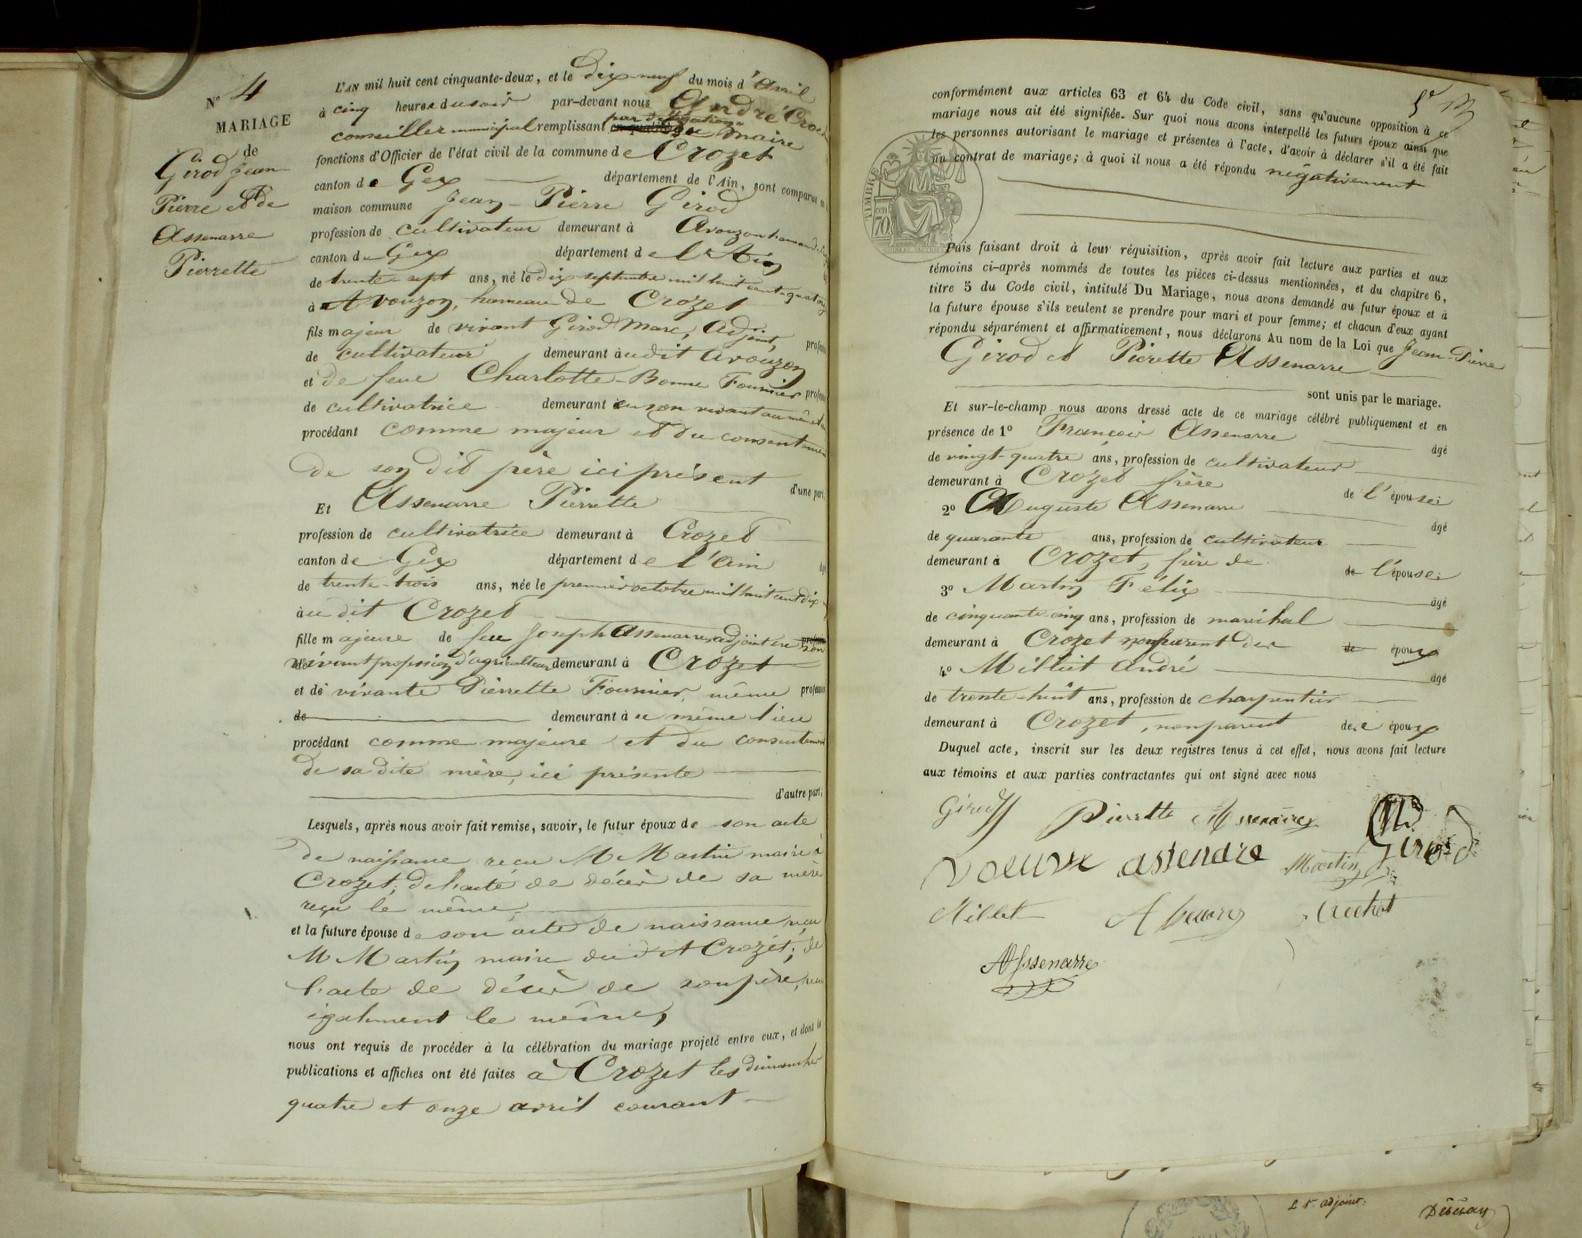 N° 4
MARIAGE
de
Girod Jean
Pierre et de
Assenarre
Pierrette
L'AN mil huit cent cinquante-deux, et le Dix neuf du mois d'avril
à cinq heures du soir par-devant nous André
conseiller municipal remplissant par délégation de maire
fonctions d'Officier de l'état civil de la commune de Crozet
canton de Gex département de l'Ain, sont comparus
maison commune Jean-Pierre Girod
profession de cultivateur demeurant à Avouzon hameau
canton de Gex département de l'Ain
de trente-sept ans, né le dix septembre mil huit cent quatorze
à Avouzon, hameau de Crozet
fils majeur de vivant Girod Marc, Adjoint,
de cultivateur demeurant audit Avouzon
et de feue Charlotte-Bonne Fournier
de cultivatrice demeurant en son vivant au même
procédant comme majeur et du consentement
de son dit père ici présent
d'une part,
Et Assenarre Pierrette
profession de cultivatrice demeurant à Crozet
canton de Gex département de l'ain
de trente-trois ans, née le premier octobre mil huit cent dix
au dit Crozet
fille majeure de feu Joseph Assenarre, adjoint en son
vivant profession d'agriculteur demeurant à Crozet
et de vivante Pierrette Fournier, même profession
de demeurant à u même lieu
procédant comme majeure et du consentement
de sa dite mère, ici présente
d'autre part;
Lesquels, après nous avoir fait remise, savoir, le futur époux de son acte
de naissance reçu M Martin maire à
Crozet; de l'acte de décès de sa mère
reçu le même,
et la future épouse de son acte de naissance, reçu
M Martin maire du dit Crozet; de
l'acte de décès de son père, reçu
également le même,
nous ont requis de procéder à la célébration du mariage projeté entre eux, et dont les
publications et affiches ont été faites à Crozet les dimanches
quatre et onze avril courant
conformément aux articles 63 et 64 du Code civil, sans qu'aucune opposition à ce
mariage nous ait été signifiée. Sur quoi nous avons interpellé les futurs époux ainsi que
les personnes autorisant le mariage et présentes à l'acte, d'avoir à déclarer s'il a été fait
un contrat de mariage; à quoi il nous a été répondu négativement
TIMBRE
70
Puis faisant droit à leur réquisition, après avoir fait lecture aux parties et aux
témoins ci-après nommés de toutes les pièces ci-dessus mentionnées, et du chapitre 6,
titre 5 du Code civil, intitulé Du Mariage, nous avons demandé au futur époux et à
la future épouse s'ils veulent se prendre pour mari et pour femme; et chacun d'eux ayant
répondu séparément et affirmativement, nous déclarons Au nom de la Loi que Jean-Pierre
Girod et Pierette Assenarre
sont unis par le mariage.
Et sur-le-champ nous avons dressé acte de ce mariage célébré publiquement et en
présence de 1° François Assenarre
âgé
de vingt-quatre ans, profession de cultivateur
demeurant à Crozet frère de l'épouse:
2° Auguste Assenarre
âgé
de quarante ans, profession de cultivateur
demeurant à Crozet, frère de de l'épouse:
3° Martin Félix
âgé
de cinquante cinq ans, profession de maréchal
demeurant à Crozet non parent des de époux
4° Milliet André
âgé
de trente-huit ans, profession de charpentier
demeurant à Crozet, non parent des époux
Duquel acte, inscrit sur les deux registres tenus à cet effet, nous avons fait lecture
aux témoins et aux parties contractantes qui ont signé avec nous
Girod Pierrette Assenarre
voeuve assenare Martin Girod
Millet
Assenarre
adjoint.